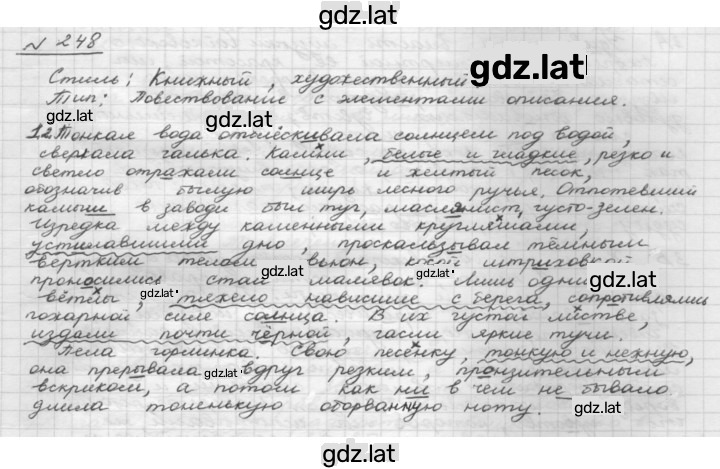 gdz.lat
№ 248
Стиль: Книжный, художественный
gdz.lat
Тип: Повествование с элементами описания.
gdz.lat
gdz.lat
12. Тонкая вода отблёскивала солнцем под водой,
сверкала галька. Камни, белые и гладкие, резко и
светло отражали солнце и желтый песок,
обозначив былую ширь лесного ручья. Отпотевший
камыш в заводи был туг, маслянист, густо-зелен.
Изредка между каменными кругляшами,
устилавшими дно, проскальзывал тёмным
вертким телом вьюн, косой штриховкой
gdz.lat
проносились стаи мальков. Лишь одни
gdz.lat
gdz.lat
вётлы, тяжело нависшие с берега, сопротивлялись
пожарной силе солнца. В их густой листве,
издали почти чёрной, гасли яркие тучи.
Пела горлинка. Свою песенку, тонкую и нежную,
она прерывала вдруг резким, пронзительным
gdz.lat
вскриком, а потом как ни в чем не бывало
длила тоненькую оборванную ноту.
gdz.lat
gdz.lat